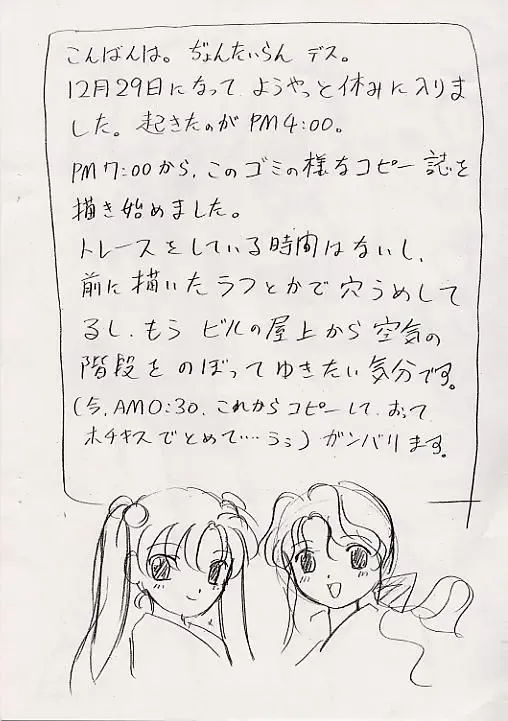 こんばんは。ぢょんたいらん デス。
12月29日になって ようやっと休みに入りま
した。起きたのが PM4:00。
PM7:00から、このゴミの様なコピー誌を
描き始めました。
トレースをしている時間はないし、
前に描いたラフとかで穴うめして
るし、もう ビルの屋上から空気の
階段をのぼってゆきたい気分です。
(今、AM0:30、これからコピーして、おって
ホチキスでとめて…うぅ)ガンバリます。